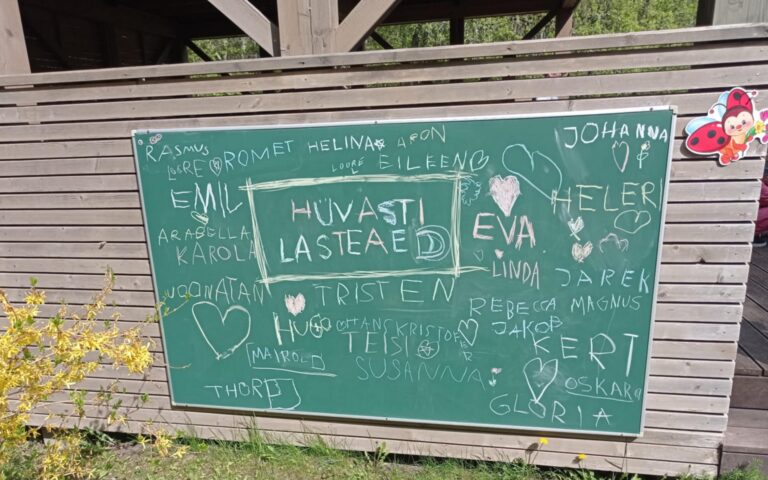 RASMUS
LOORE
ROMET
HELINA
ARON
LOORE
EILEEN
JOHANNA
EMIL
HÜVASTI
LASTEAED
EVA
HELERI
ARABELLA
KAROLA
LINDA
JAREK
JOONATAN
TRISTEN
REBECCA
MAGNUS
HUGO
HANS KRISTOF
JAKOB
TEISI
KERT
MAIROLD
SUSANNA
OSKAR
THOR
GLORIA